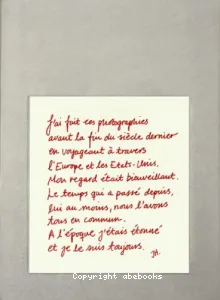 J'ai fait ces photographies
avant la fin du siècle dernier
en voyageant à travers
l'Europe et les Etats-Unis.
Mon regard était bienveillant.
Le temps qui a passé depuis,
lui au moins, nous l'avons
tous en commun.
A l'époque j'étais étonné
et je le suis toujours.
Copyright abebooks